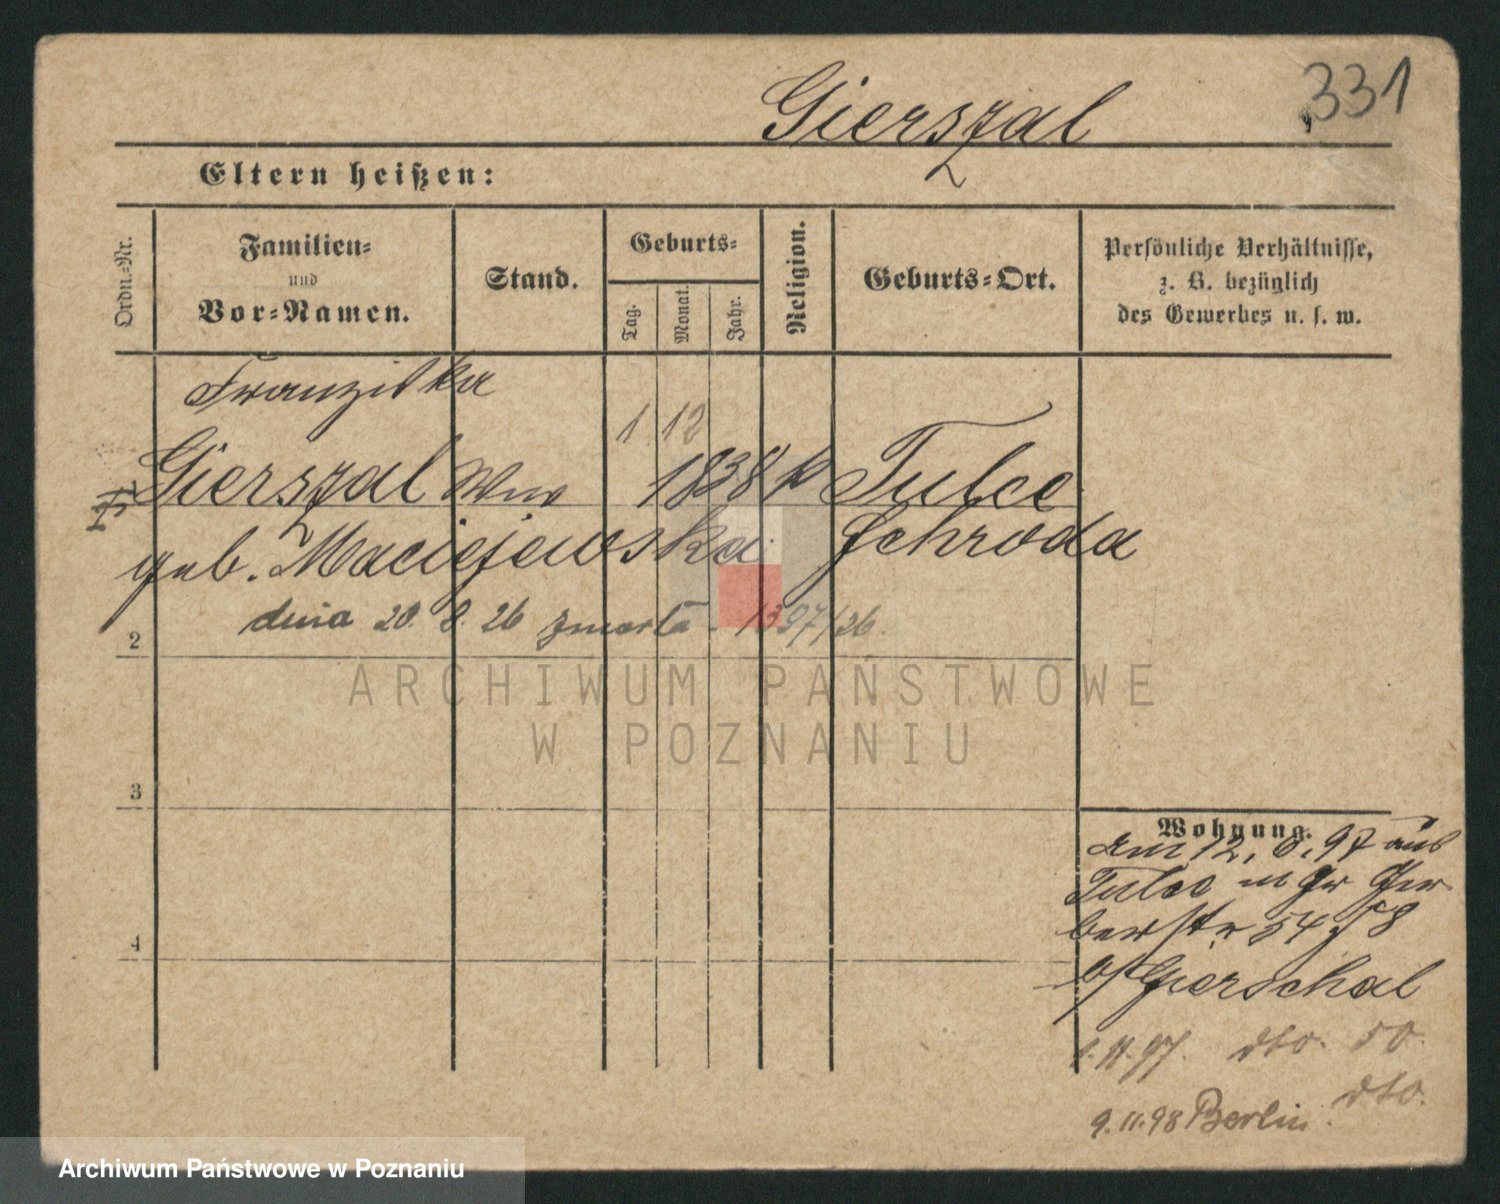 Gierszal
331
Eltern heißen:
Ordn.-Nr.
Familien-
und
Vor-Namen.
Stand.
Geburts-
Tag.
Monat.
Jahr.
Religion.
Geburts-Ort.
Persönliche Verhältnisse,
z. B. bezüglich
des Gewerbes u. s. w.
Franziska
1 12
Gierszal Ww 1838 k Tulce
geb. Maciejewska Schroda
dnia 20. 8. 26 zmarła 1397/26.
2
ARCHIWUM PAŃSTWOWE
W POZNANIU
3
Wohnung.
am 12. 8. 97 aus
Tulce Gr Ger
berstr 54
b/ Gierschal
4
1. 11. 97. dto. 50.
dto.
9. 11. 98 Berlin.
Archiwum Państwowe w Poznaniu